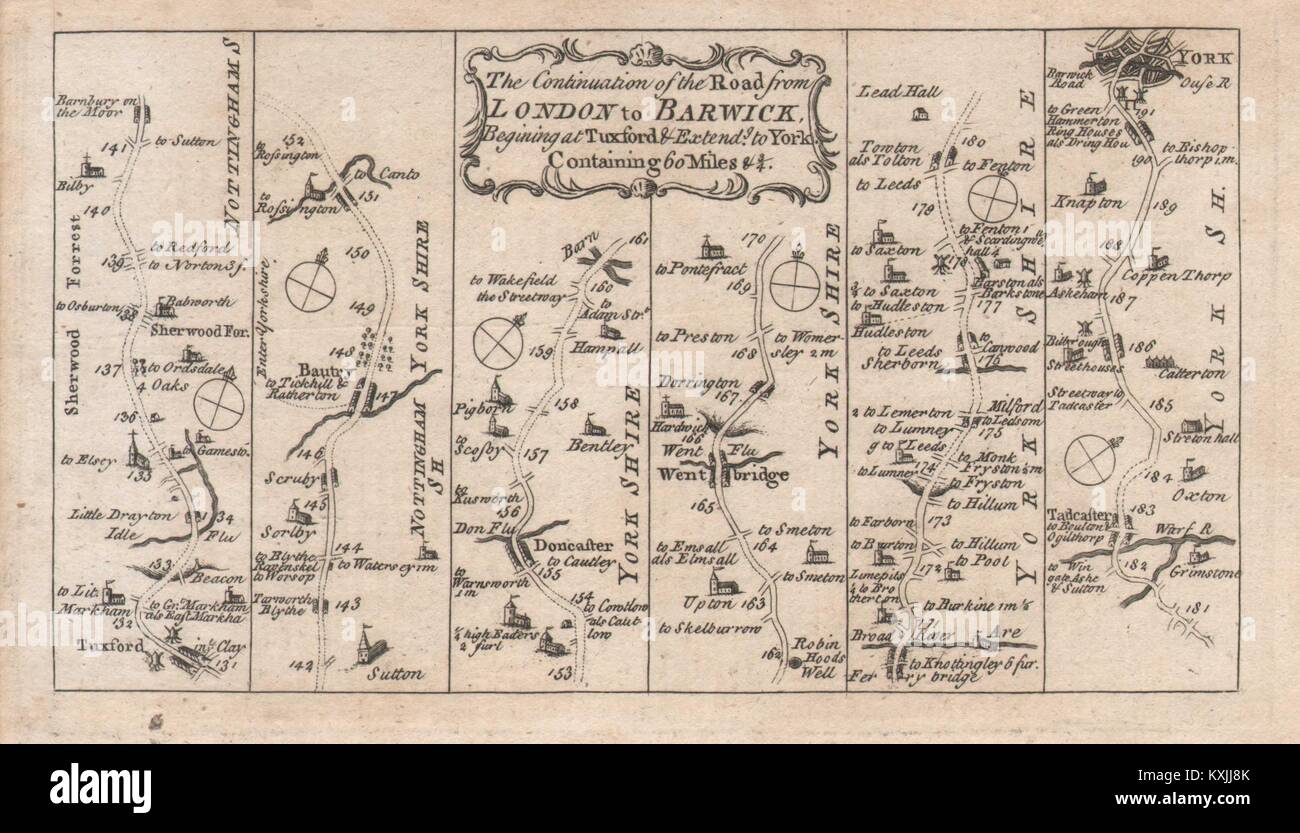 The Continuation of the Road from
LONDON to BARWICK,
Begining at Tuxford & Extend.g to York
Containing 60 Miles & ¾.
NOTTINGHAM S
Barnbury on
the Moor
141
to Sutton
Bilby
140
Sherwood Forrest
to Redford
139
to Norton 3 f.
to Osburton
138
Babworth
Sherwood For.
137
to Ordsdale
4 Oaks
136
to Elsey
to Gamesto.
135
Little Drayton
134
Idle
Flu
133
Beacon
to Lit.
Markham
to Gr. Markham
als East Markha
132
Tuxford
in ye Clay
131
152
to
Rossington
to Canto
to
Rossington
151
150
Enter Yorkshire
149
148
Bautry
to Tickhill &
Ratherton
147
NOTTINGHAM SH
YORK SHIRE
146
Scruby
145
Sorlby
144
to Blythe
Ravenskel
to Worsop
to Watersey 1 m
Tarworth
Blythe
143
142
Sutton
Barn
161
to Wakefield
the Streetway
160
to
Adam Str.t
Hampall
159
Pigborn
158
to
Scosby
Bentley
157
to
Kusworth
156
Don Flu
Doncaster
to Cautley
155
to
Warnsworth
1 m
154
to Cowtlow
als Caut
low
¼ high Eaders
2 furl
153
YORK SHIRE
170
to Pontefract
169
to Preston
to Womer
sley 2 m
168
Dorrington
167
Hardwick
166
Went
Flu
Went bridge
165
to Smeton
to Emsall
als Elmsall
164
to Smeton
Upton
163
to Skelburrow
162
Robin
Hoods
Well
YORK SHIRE
Lead Hall
180
Towton
als Tolton
to Fenton
to Leeds
179
to Fenton 1
& Scardingwe
hall 4
to Saxton
178
Barston als
Barkstone
¾ to Saxton
to Hudleston
177
Hudleston
to Leeds
Sherborn
to
Cawood
176
2 to Lemerton
to Lumney
Milford
to Ledsom
175
9 to Leeds
to Lumner
174
to Monk
Fryston ½ m
to Fryston
to Hillum
to Farborn
173
to Burton
to Hillum
to Pool
Limepits
¼ to Bro
therton
172
to Burkine 1 m ½
Broad
171
River
Are
to Knottingley 6 fur.
Fer ry bridge
YORK SHIRE
YORK
Barwick
Road
Ouse R
to Green
Hammerton
Ring Houses
als Dring Hou
191
190
to Bishop
thorp 1 m.
Knapton
189
188
Coppen Thorp
Askeham
187
Bilbrough
Streethouses
186
Catterton
Streetway to
Tadcaster
185
Stretonhall
184
Oxton
Tadcaster
183
to Boulan
Ogilthorp
Warf R
to Win
gate Ashe
& Sutton
182
Grimstone
181
YORK SH.
alamy
Image ID: KXJJ8K
www.alamy.com